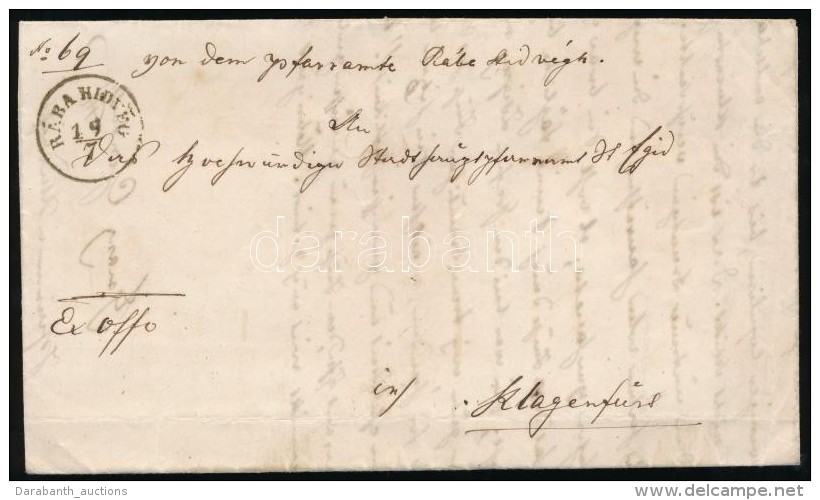 No 69 von dem Pfarramte Rába Hidvégh.
RÁBA HIDVÉG
19/7
An
Das Hochwürdige Stadthauptpfarramt St Egid
darabanth
Ex offo
in
Klagenfurt
Darabanth_auctions
http://www.delcampe.net